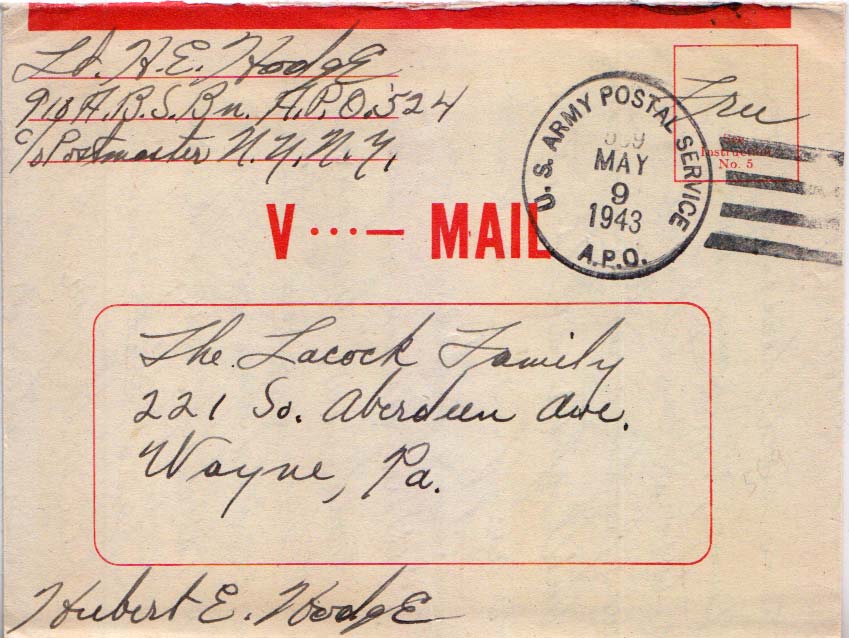 Lt. H.E. HodgE
918 A.B.S.Bn. A.P.O. 524
c/o Postmaster N.Y. N.Y.
Free
See
Instruction
No. 5
U.S. ARMY POSTAL SERVICE
MAY
9
1943
A.P.O.
V ···— MAIL
The Lacock Family
221 So. Aberdeen Ave.
Wayne, Pa.
Hubert E. HodgE